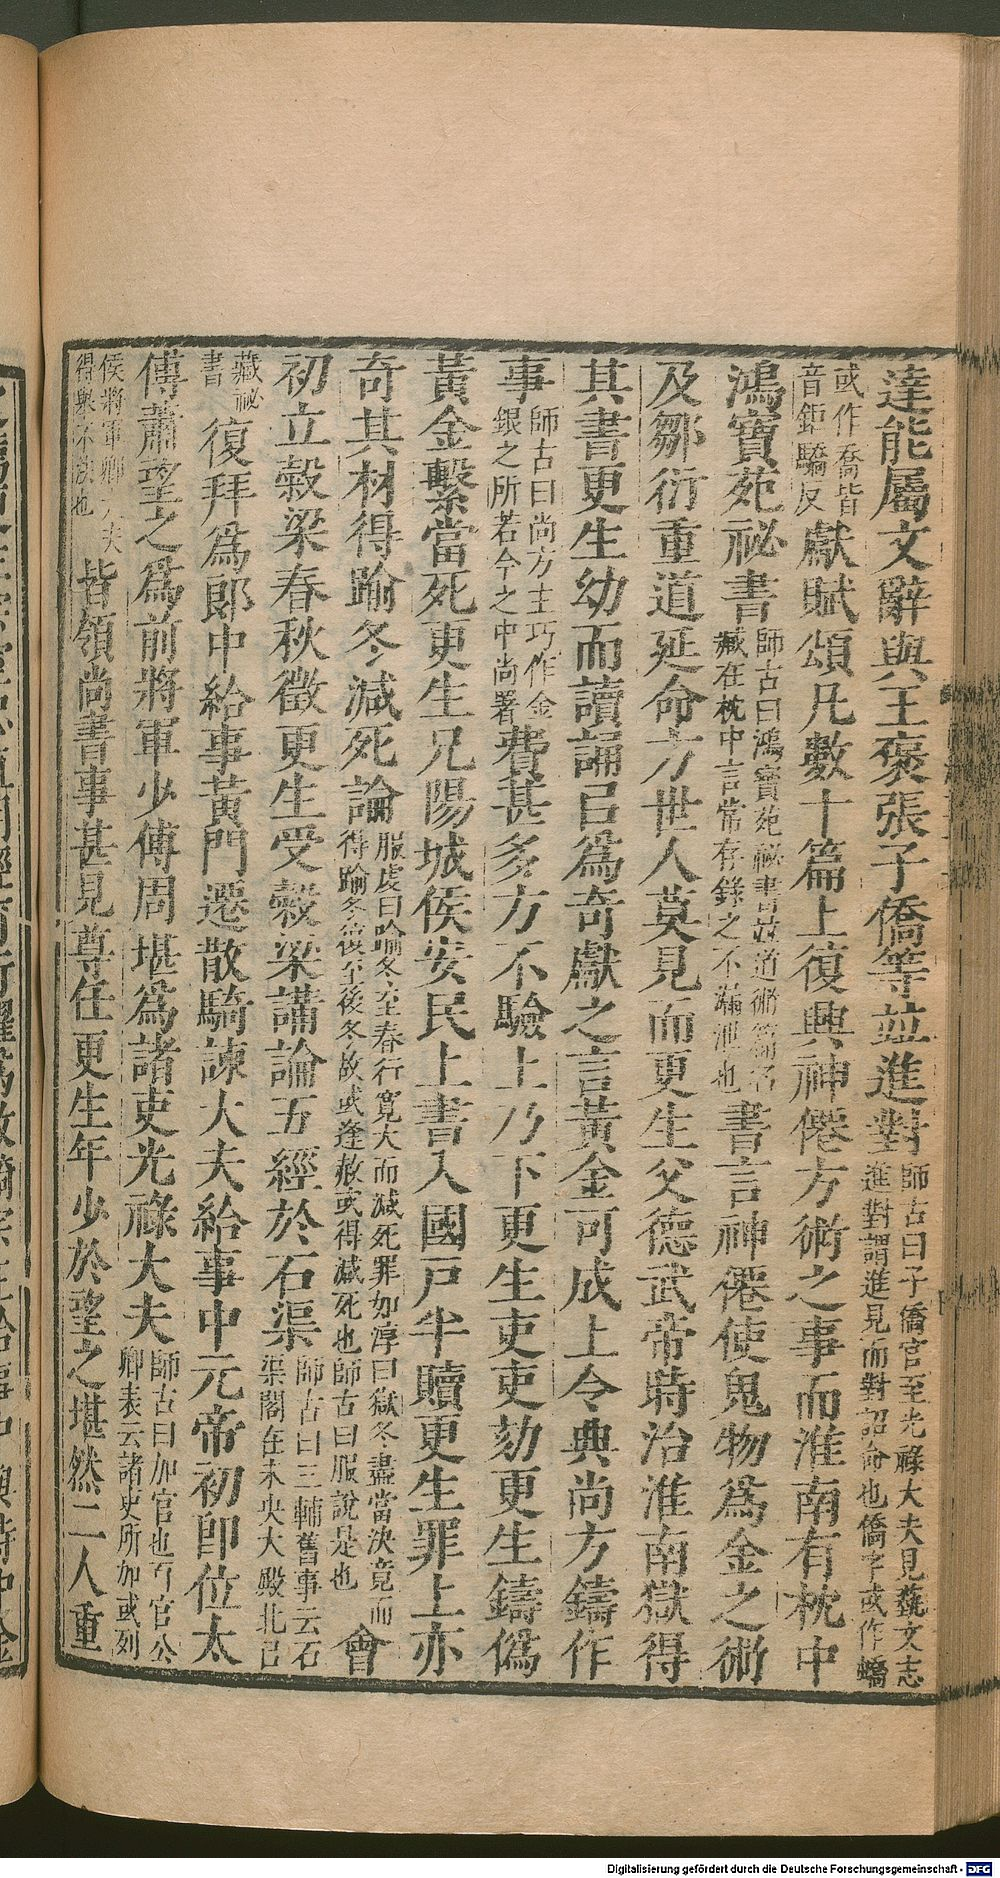 達能屬文辭與王褒張子僑等並進對師古曰子僑官至光祿大夫見蓺文志進對謂進見而對詔命也僑字或作蟜
或作喬皆音鉅驕反獻賦頌凡數十篇上復興神僊方術之事而淮南有枕中
鴻寶苑祕書師古曰鴻寶苑祕書並道術篇名臧在枕中言常存錄之不漏泄也書言神僊使鬼物為金之術
及鄒衍重道延命方世人莫見而更生父德武帝時治淮南獄得
其書更生幼而讀誦㠯為奇獻之言黃金可成上令典尚方鑄作
事師古曰尚方主巧作金銀之所若今之中尚署費甚多方不驗上乃下更生吏吏劾更生鑄偽
黃金繫當死更生兄陽城侯安民上書入國戶半贖更生罪上亦
奇其材得踰冬減死論服虔曰踰冬至春行寬大而減死罪如淳曰獄冬盡當決竟而得踰冬復至後冬故或逢赦或得減死也師古曰服說是也會
初立穀梁春秋徵更生受穀梁講論五經於石渠師古曰三輔舊事云石渠閣在未央大殿北㠯
藏祕書復拜為郎中給事黃門遷散騎諫大夫給事中元帝初即位太
傅蕭望之為前將軍少傅周堪為諸吏光祿大夫師古曰加官也百官公卿表云諸吏所加或列
侯將軍卿大夫得舉不法也皆領尚書事甚見尊任更生年少於望之堪然二人重
Digitalisierung gefördert durch die Deutsche Forschungsgemeinschaft - DFG